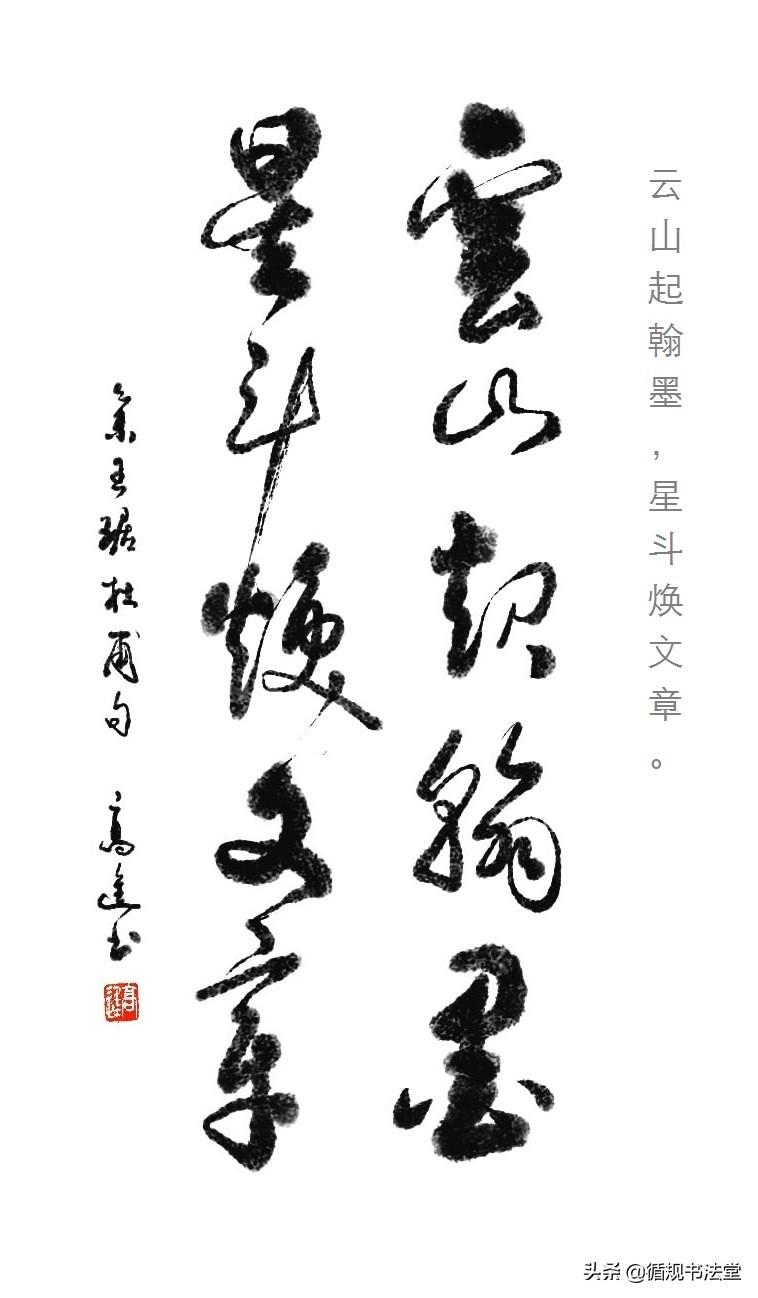 云山起翰墨，星斗焕文章。
雲山起翰墨
星斗焕文章
集王琚杜甫句 高進书
头条 @循规书法堂